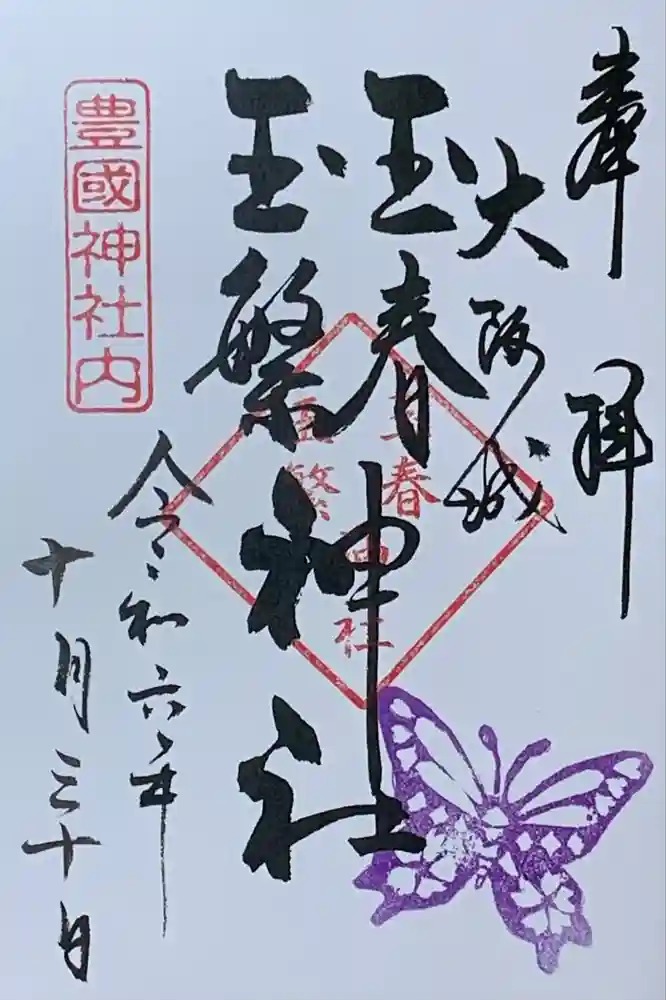 奉拝
大阪城
玉春
玉繁
神社
玉春
玉繁
神社
令和六年
十月三十日
豊國神社内